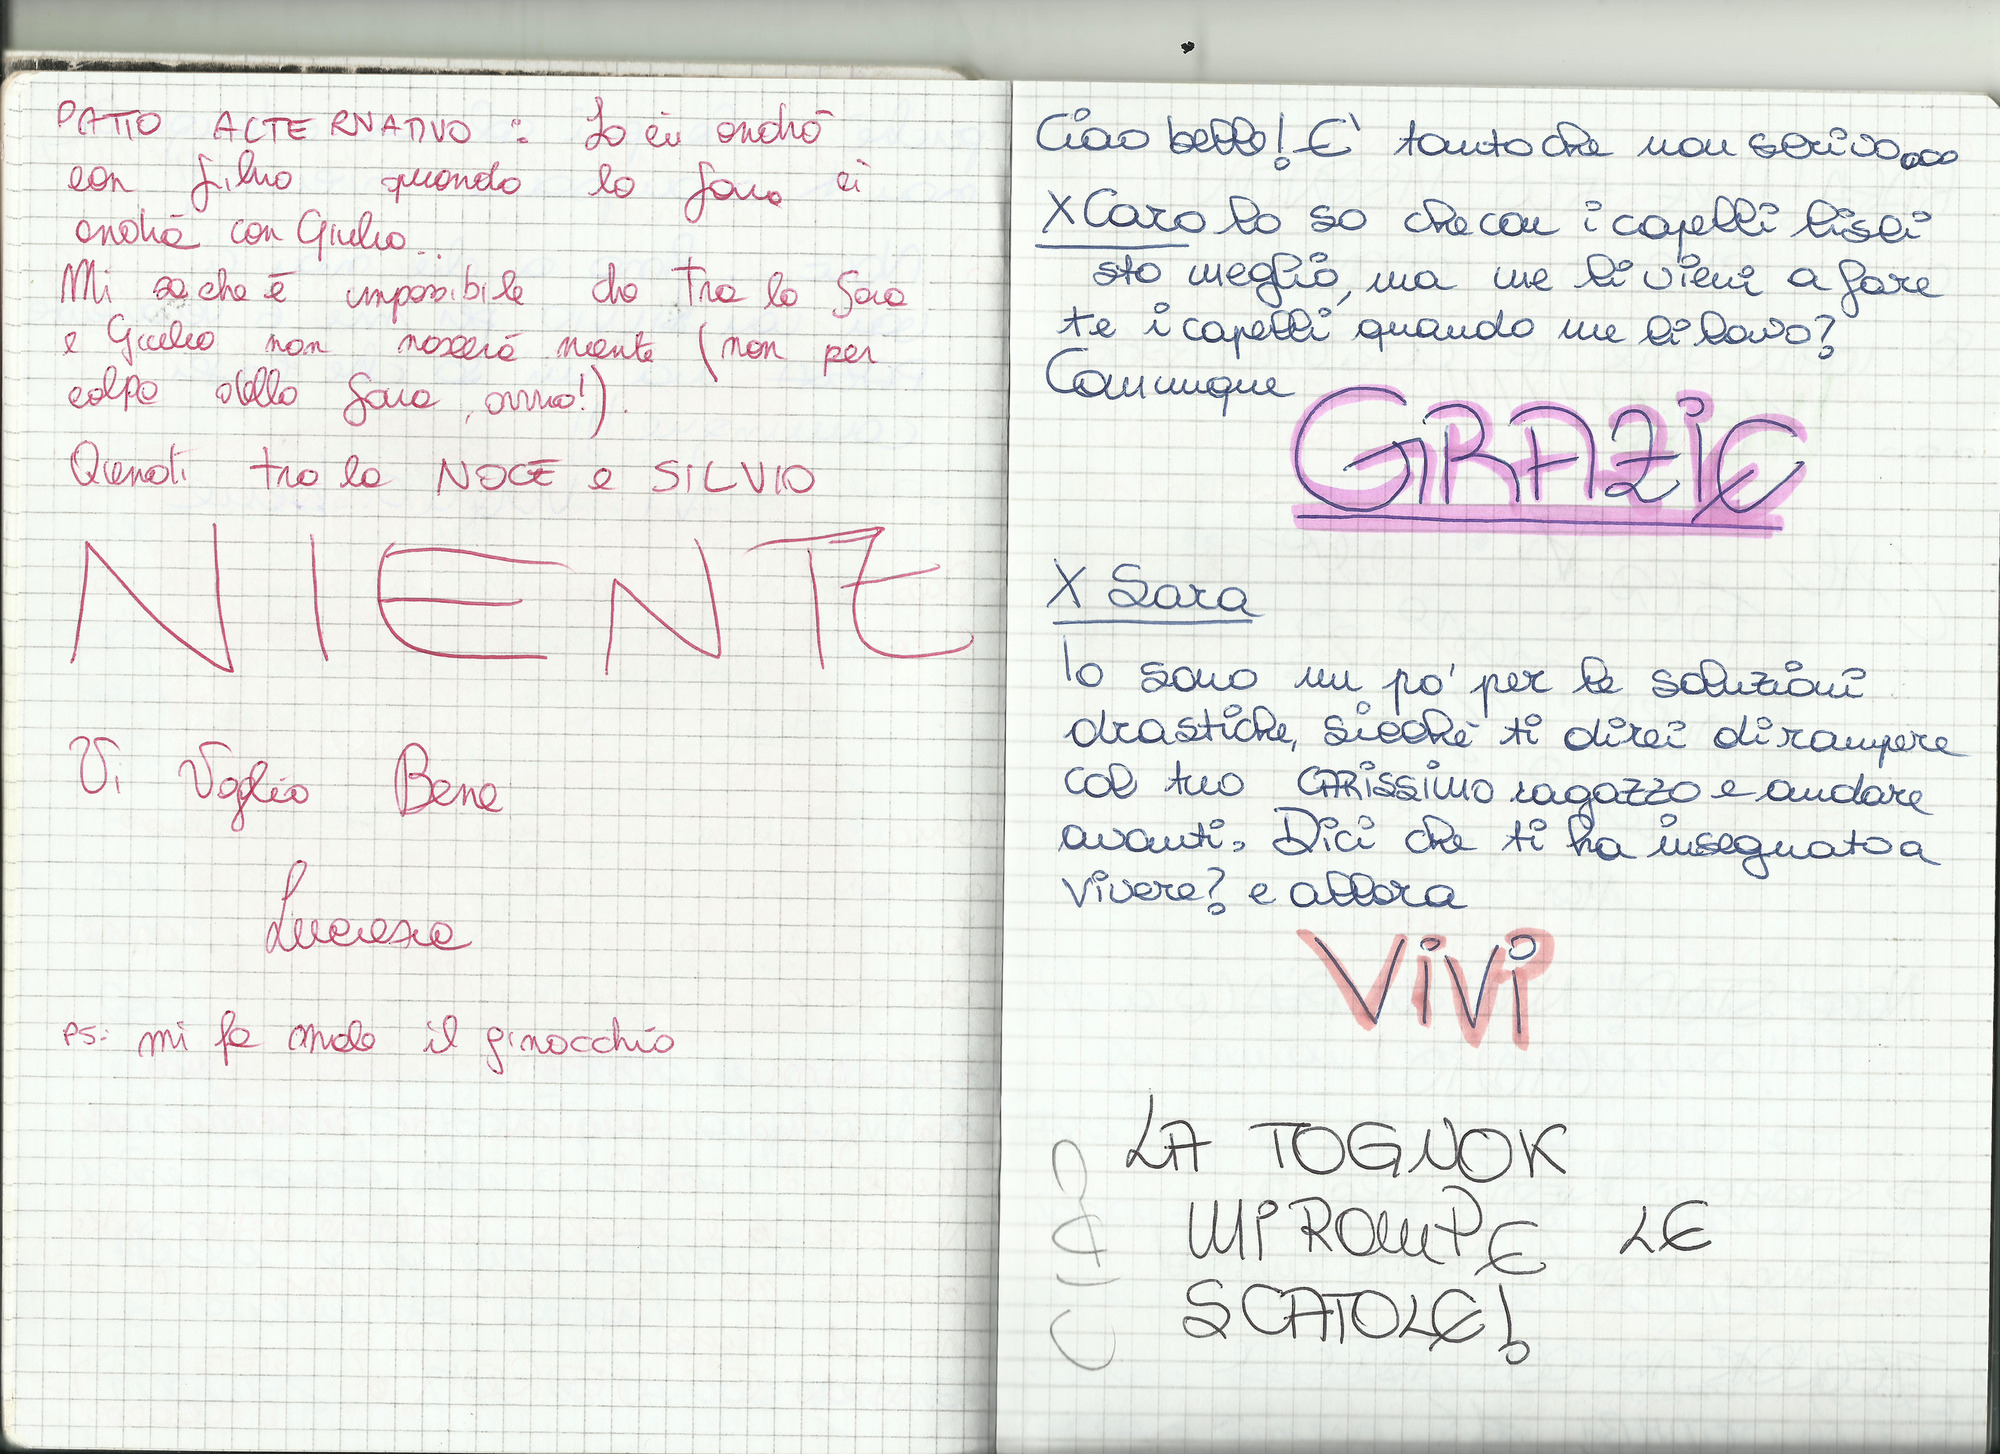 PATTO ALTERNATIVO : Io ci andrò
con Silvio quando la Sara ci
andrà con Giulio...
Mi sa che è impossibile che tra la Sara
e Giulio non nascerà niente (non per
colpa della Sara, ovvio!).
Quindi tra la NOCE e SILVIO
NIENTE
Vi Voglio Bene
Lucrezia
PS: mi fa male il ginocchio
Ciao bello! E' tanto che non scrivo....
X Caro lo so che con i capelli lisci
sto meglio, ma me li vieni a fare
te i capelli quando me li lavo?
Comunque
GRAZIE
X Sara
Io sono un po' per le soluzioni
drastiche, sicchè ti direi di rompere
col tuo CARissimo ragazzo e andare
avanti. Dici che ti ha insegnato a
vivere? e allora
ViVi
LA TOGNOK
MI ROMPE LE
SCATOLE!
CIAO